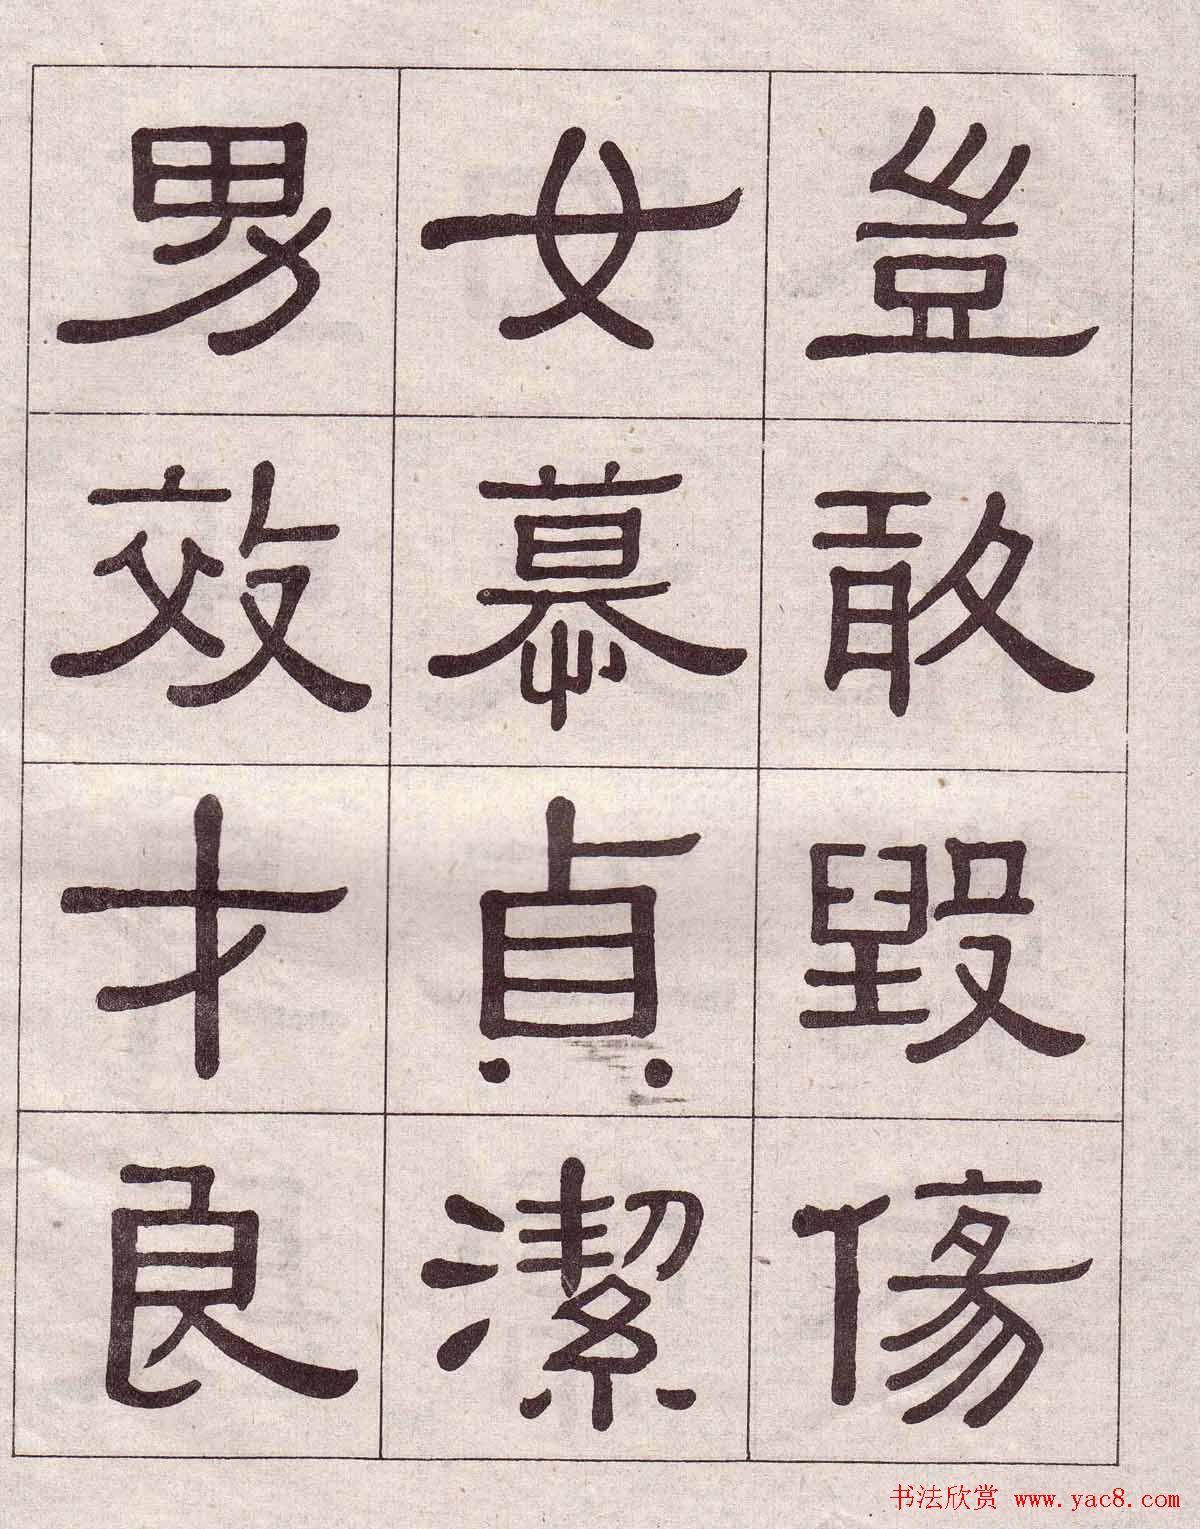 豈敢毀傷
女慕貞潔
男效才良
书法欣赏 www.yac8.com